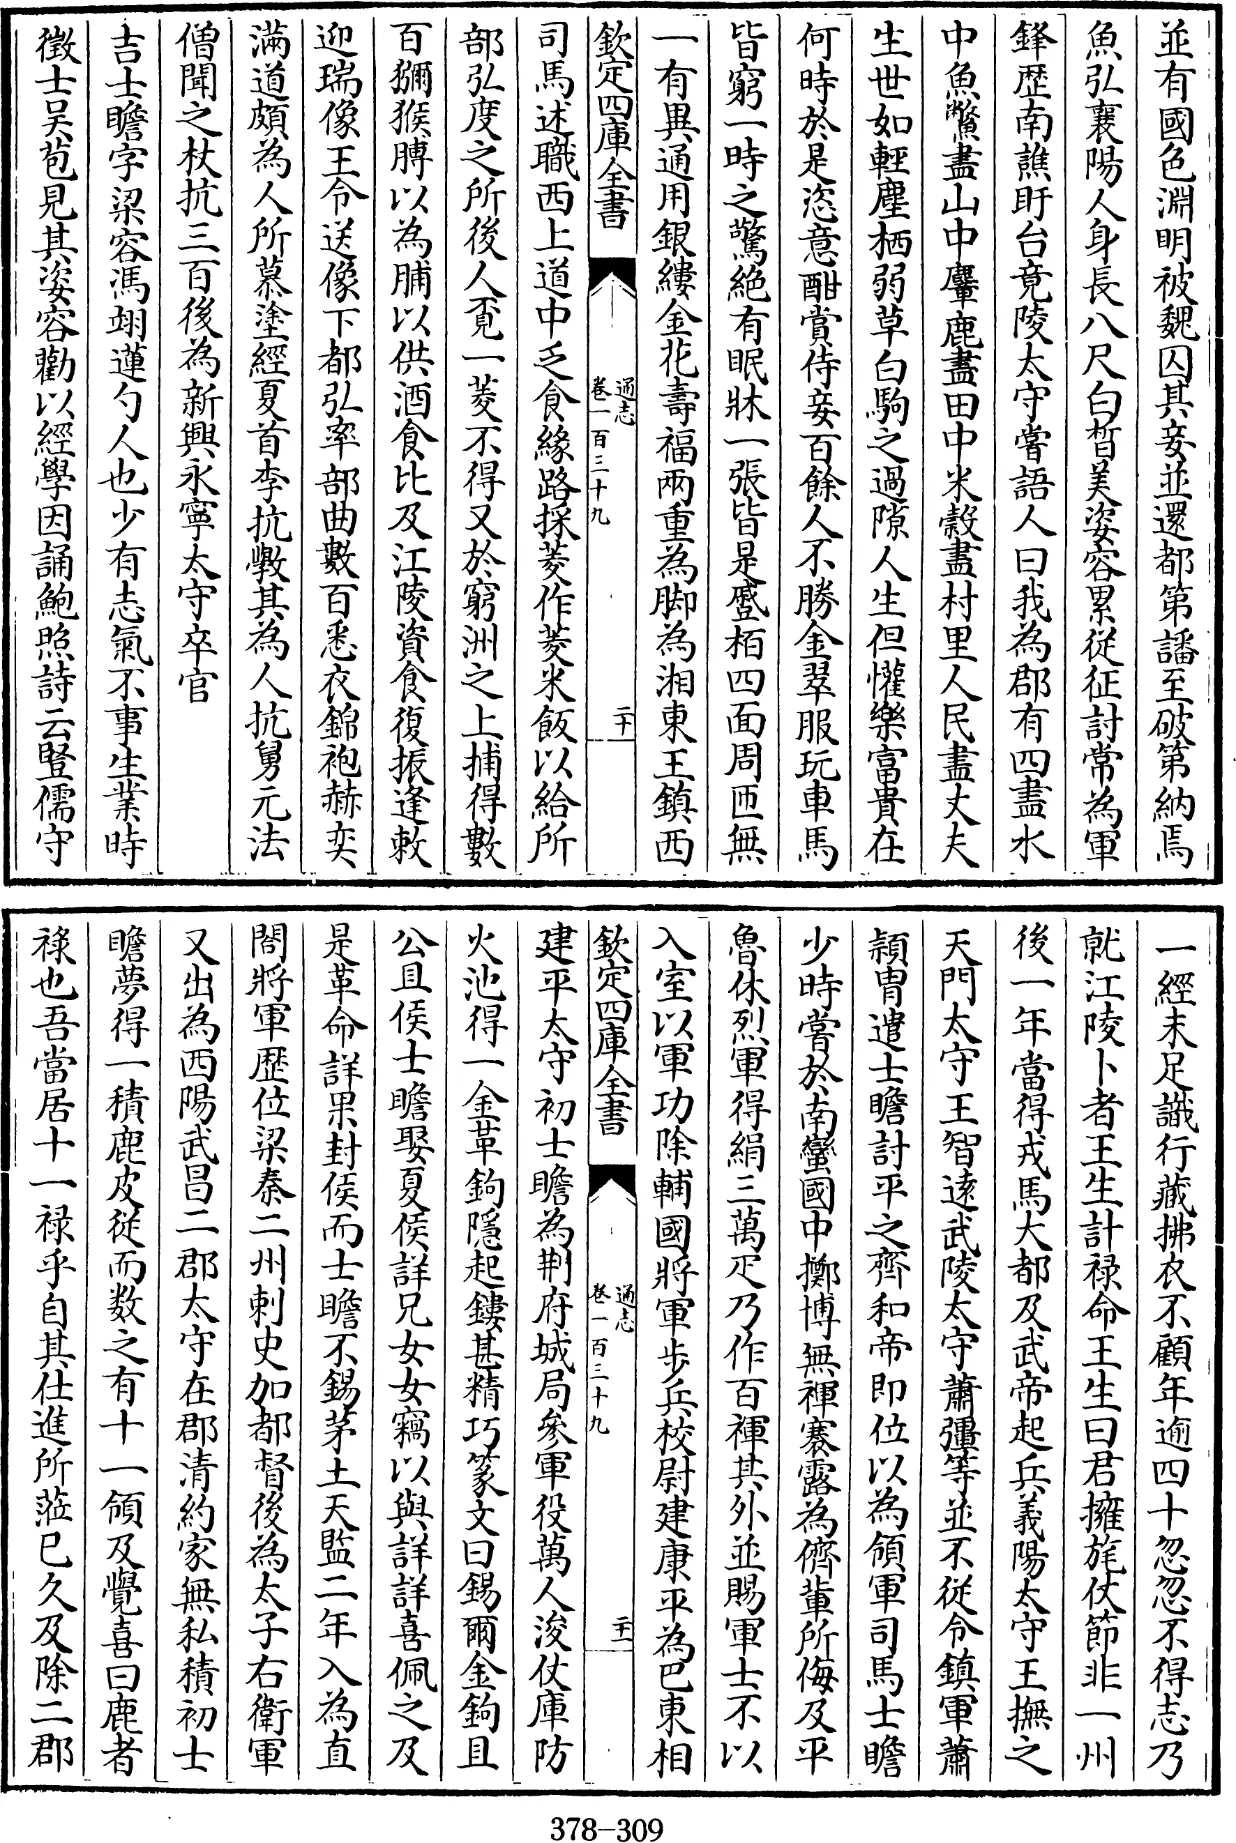 並有國色淵明被魏囚其妾並還都第譒至破第納焉
魚弘襄陽人身長八尺白晳美姿容累從征討常為軍
鋒歴南譙盱台竟陵太守嘗語人曰我為郡有四盡水
中魚鱉盡山中麞鹿盡田中米糓盡村里人民盡丈夫
生世如輕塵栖弱草白駒之過隙人生但懽樂富貴在
何時於是恣意酣賞侍妾百餘人不勝金翠服玩車馬
皆窮一時之驚絶有眠牀一張皆是蹙栢四面周匝無
一有異通用銀縷金花壽福兩重為脚為湘東王鎮西
欽定四庫全書
通志
卷一百三十九
二十
司馬述職西上道中乏食緣路採菱作菱米飯以給所
部弘度之所後人覔一菱不得又於窮洲之上捕得數
百獼猴膊以為脯以供酒食比及江陵資食復振逢敕
迎瑞像王令送像下都弘率部曲數百悉衣錦袍赫奕
滿道頗為人所慕塗經夏首李抗斆其為人抗舅元法
僧聞之杖抗三百後為新興永寧太守卒官
吉士瞻字梁容馮翊蓮勺人也少有志氣不事生業時
徵士吴苞見其姿容勸以經學因誦鮑照詩云豎儒守
一經未足識行藏拂衣不顧年逾四十忽忽不得志乃
就江陵卜者王生計禄命王生曰君擁旄仗節非一州
後一年當得戎馬大都及武帝起兵義陽太守王撫之
天門太守王智逺武陵太守蕭彊等並不從令鎮軍蕭
頴胄遣士瞻討平之齊和帝即位以為領軍司馬士瞻
少時嘗於南蠻國中擲博無褌褰露為儕輩所侮及平
魯休烈軍得絹三萬疋乃作百褌其外並賜軍士不以
入室以軍功除輔國將軍步兵校尉建康平為巴東相
欽定四庫全書
通志
卷一百三十九
二十一
建平太守初士瞻為荆府城局參軍役萬人浚仗庫防
火池得一金革鉤隱起鏤甚精巧篆文曰錫爾金鉤且
公且侯士瞻娶夏侯詳兄女女竊以與詳詳喜佩之及
是革命詳果封侯而士瞻不錫茅土天監二年入為直
閤將軍歴位梁秦二州刺史加都督後為太子右衛軍
又出為西陽武昌二郡太守在郡清約家無私積初士
瞻夢得一積鹿皮従而数之有十一領及覺喜曰鹿者
禄也吾當居十一禄乎自其仕進所蒞已久及除二郡
378-309